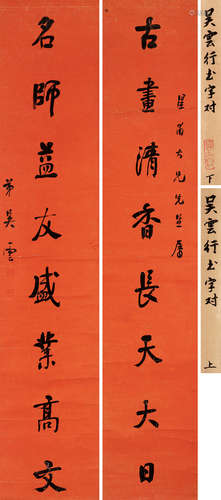 古畫清香長天大日
星甫大兄先生屬
名師益友盛業高文
弟吳雲
吳雲行书字对 下
吳雲行书字对 上